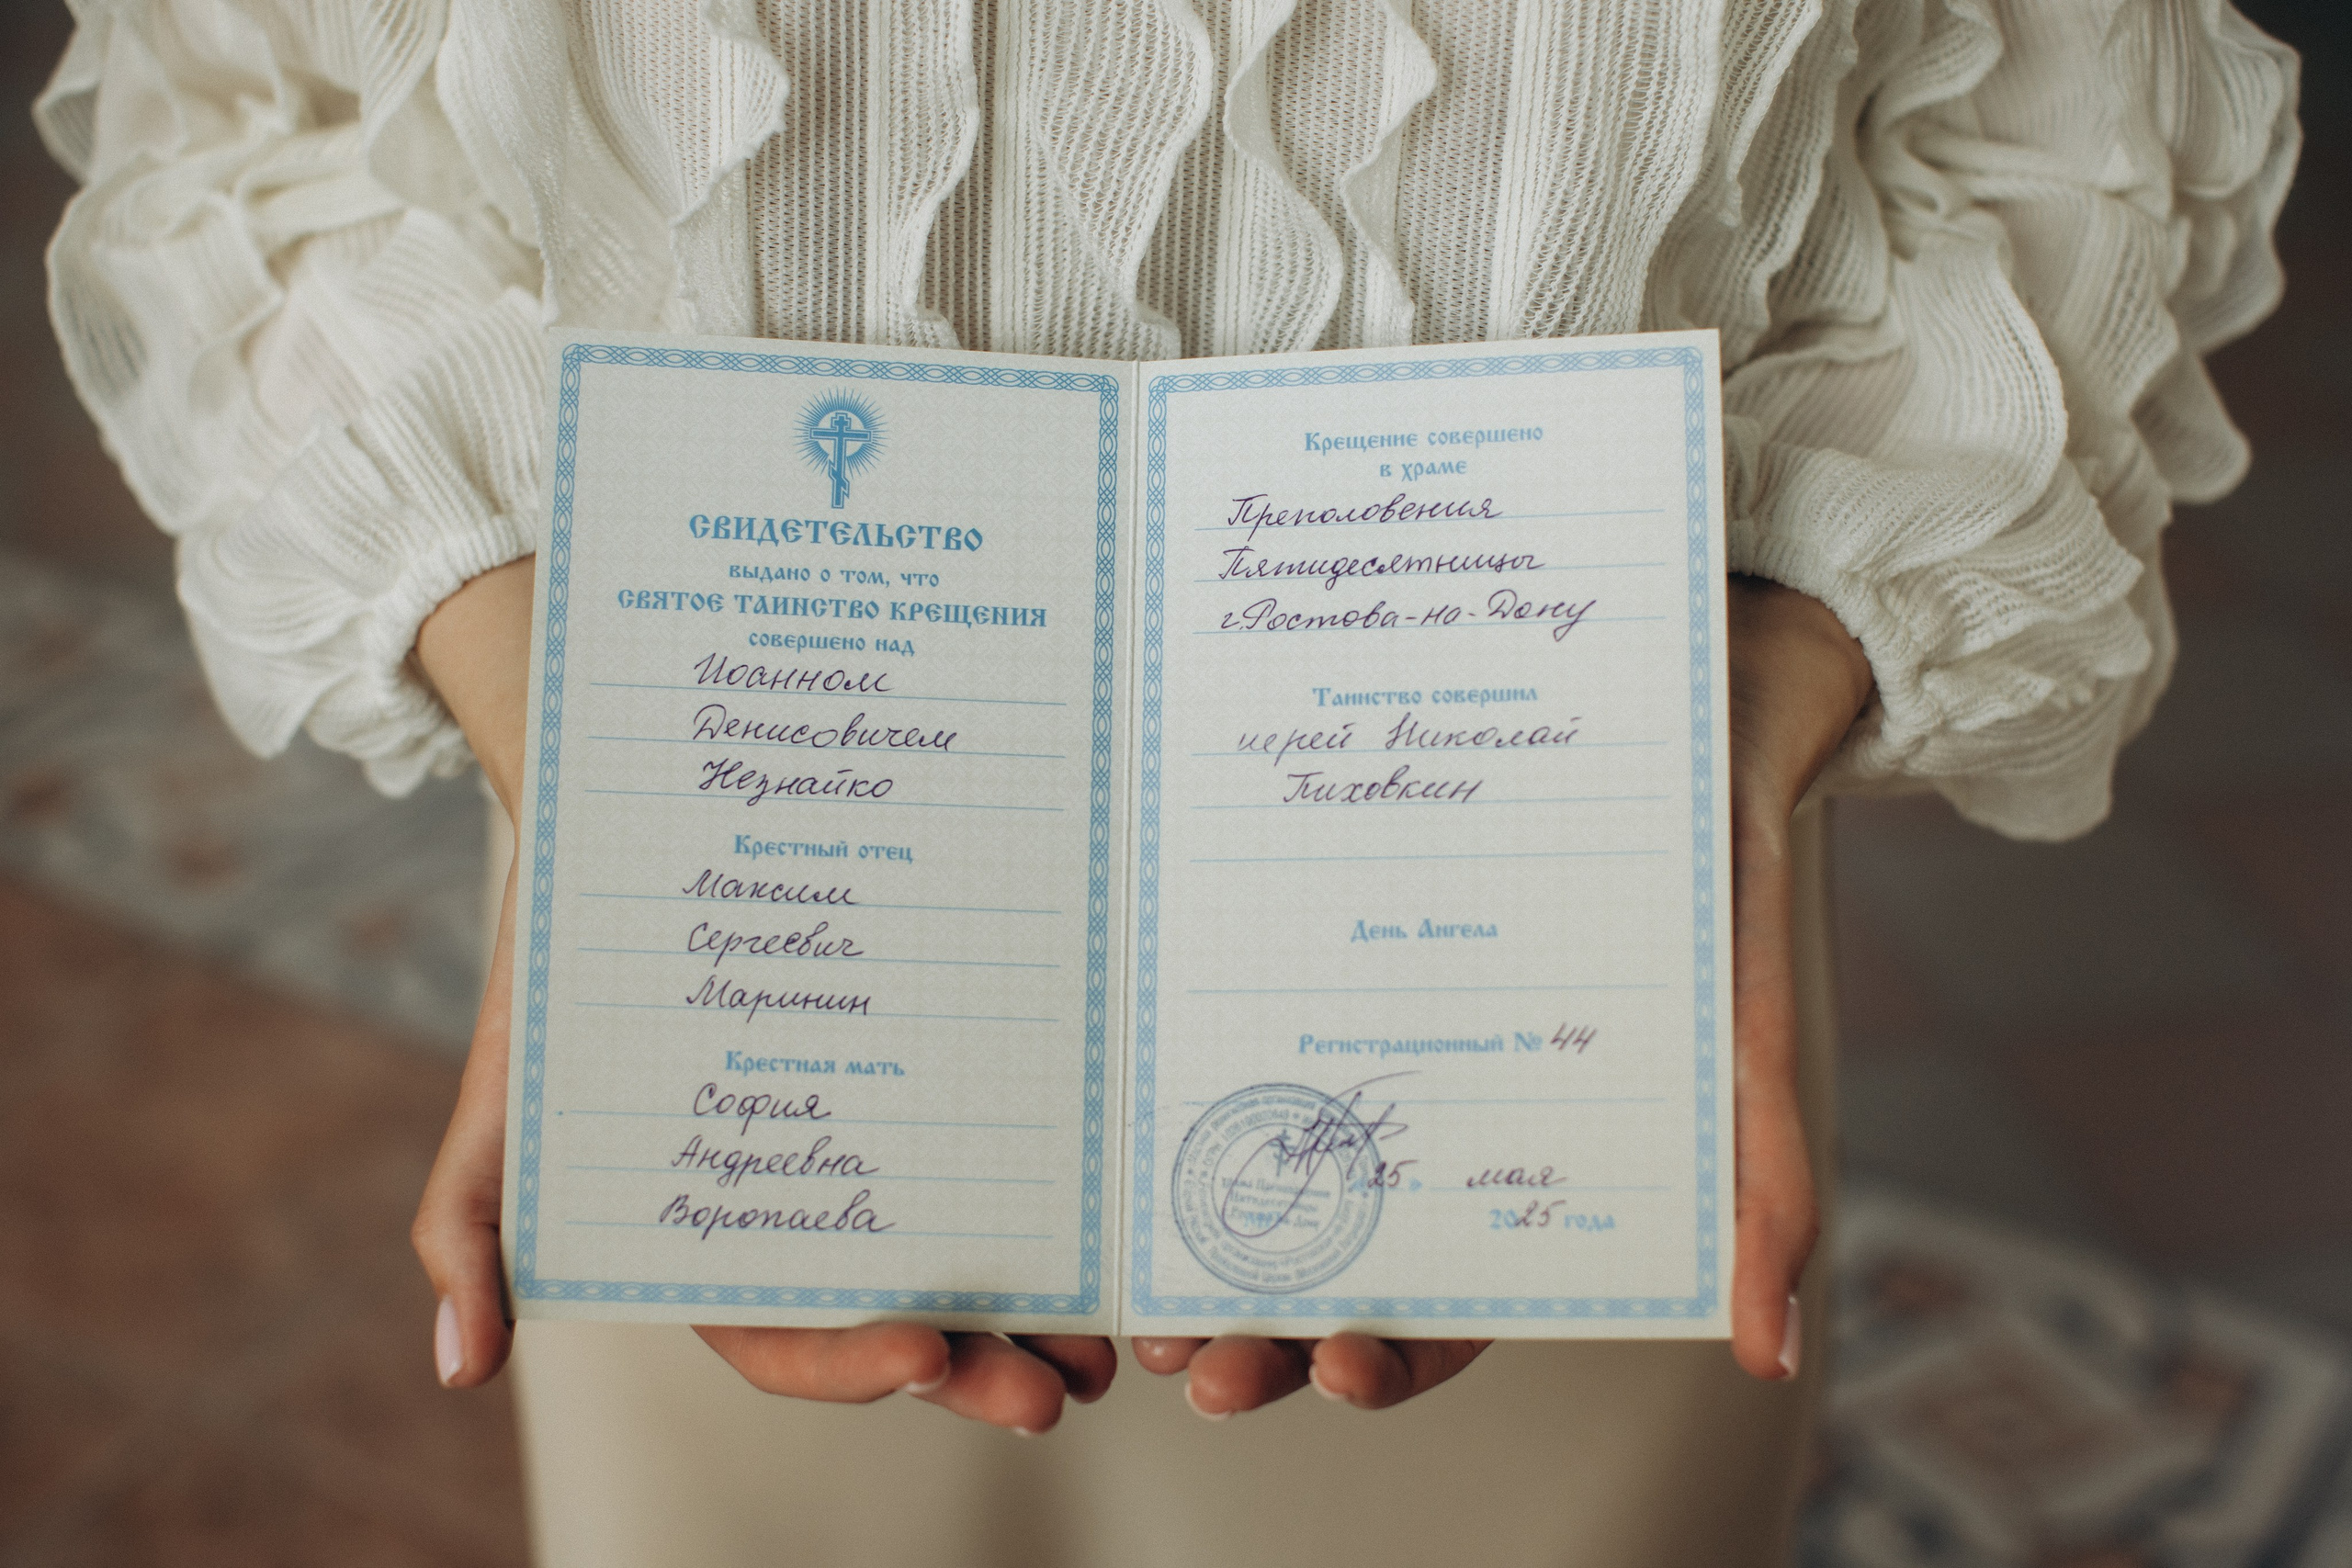 СВИДЕТЕЛЬСТВО
выдано о том, что
СВЯТОЕ ТАИНСТВО КРЕЩЕНИЯ
совершено над
Иоанном
Денисовичем
Незнайко
Крестный отец
Максим
Сергеевич
Маринин
Крестная мать
София
Андреевна
Воропаева
Крещение совершено
в храме
Преполовения
Пятидесятницы
г.Ростова-на-Дону
Таинство совершил
иерей Николай
Пиховкин
День Ангела
Регистрационный № 44
25 мая
2025 года